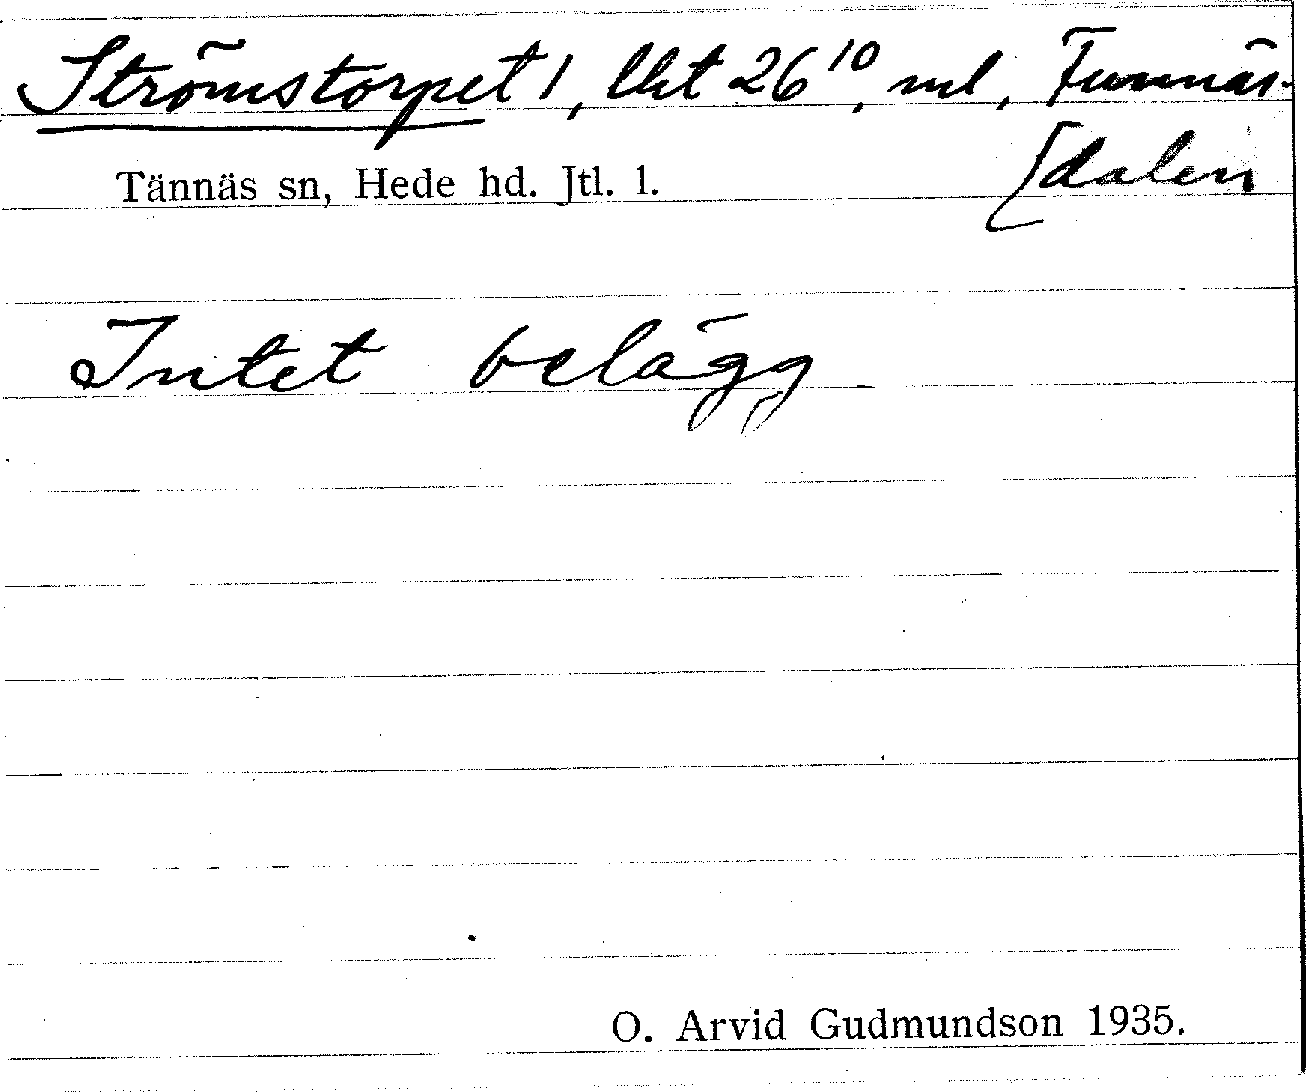 Strömstorpet 1, lht 26¹⁰, ml, Funnäs-
[dalen
Tännäs sn, Hede hd. Jtl. l.
Intet belägg
O. Arvid Gudmundson 1935.